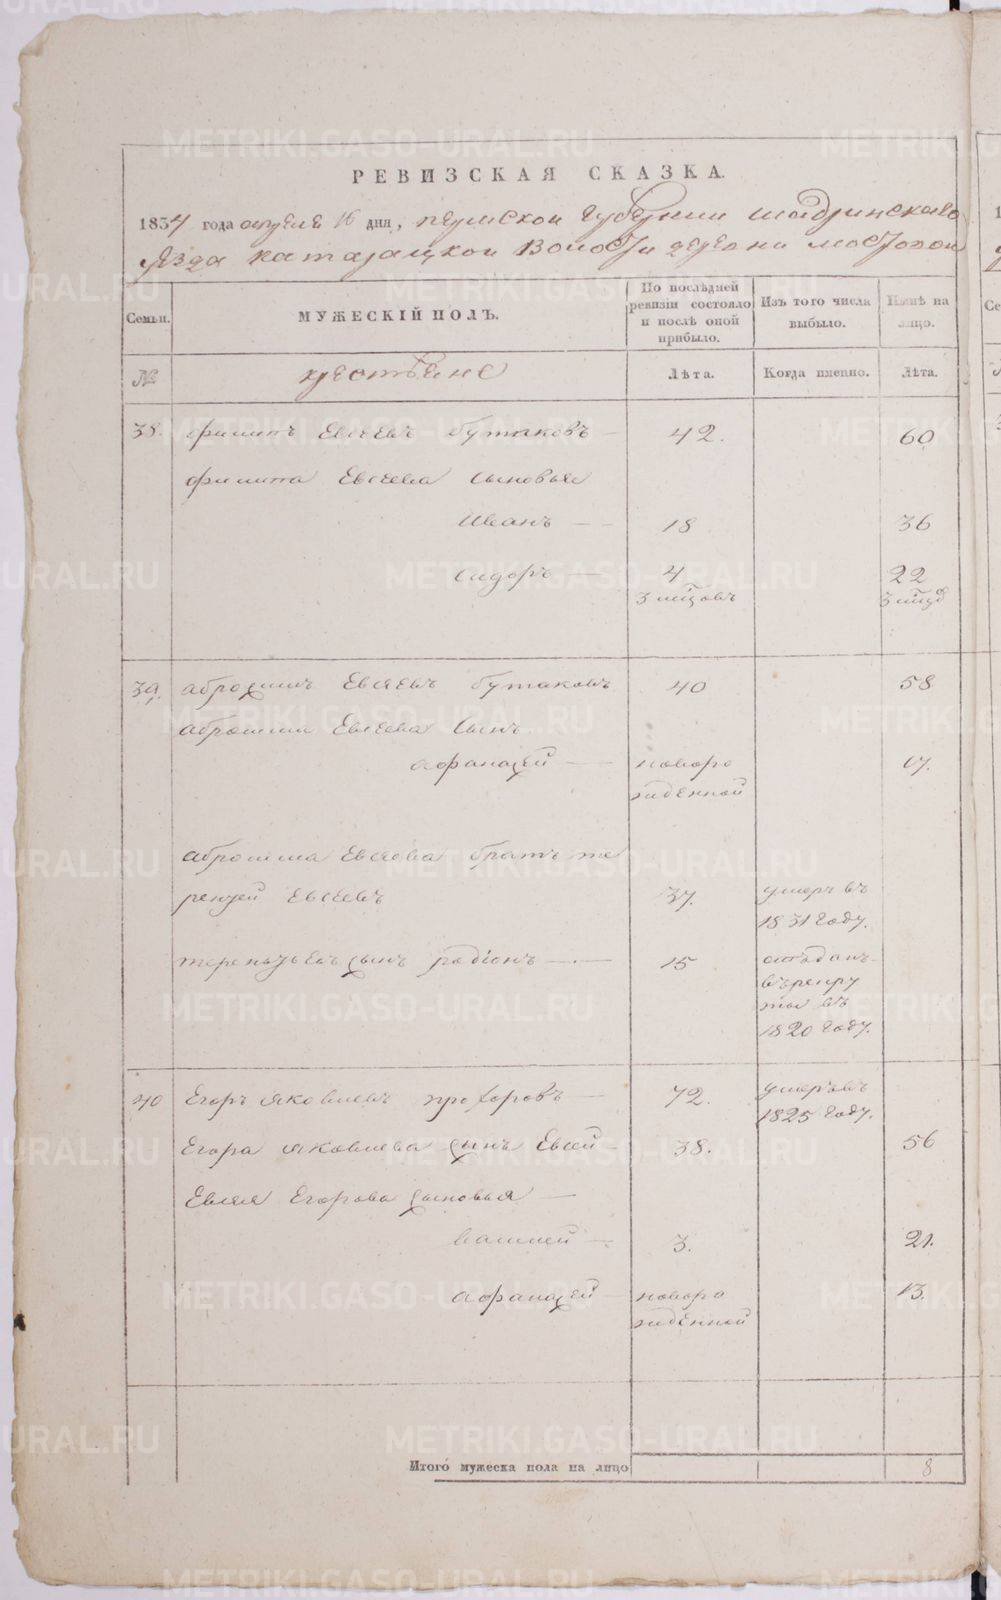 РЕВИЗСКАЯ СКАЗКА.
1834 года апреля 16 дня, пермской губернии шадринскаго
уезда катайской волости деревни мостовой
Семьи.
МУЖЕСКІЙ ПОЛЪ.
По послѣдней ревизіи состояло и послѣ оной прибыло.
Изъ того числа выбыло.
Нынѣ на лицо.
№
крестьяне
Лѣта.
Когда имянно.
Лѣта.
38. филипъ Евсеевъ бутаковъ 42. 60
филипа Евсеева сыновья
Иванъ 18 36
сидоръ 4 22
3 мцовъ
39. Евсеевъ бутаковъ 40 58
Евсеева сынъ
афанасей новоро 17.
жденной
Евсеева братъ те
рентей Евсеевъ 37. умеръ въ
1831 году.
терентьевъ сынъ радіонъ 15 отъданъ
въ рекру
ты въ
1820 году.
40 Егоръ яковлевъ прохоровъ 72. умеръ въ
1825 году.
Егора яковлева сынъ Евсей 38. 56
Евсея Егорова сыновья
василей 3. 21.
афанасей новоро 13.
жденной
Итого мужеска пола на лицо 8
METRIKI.GASO-URAL.RU